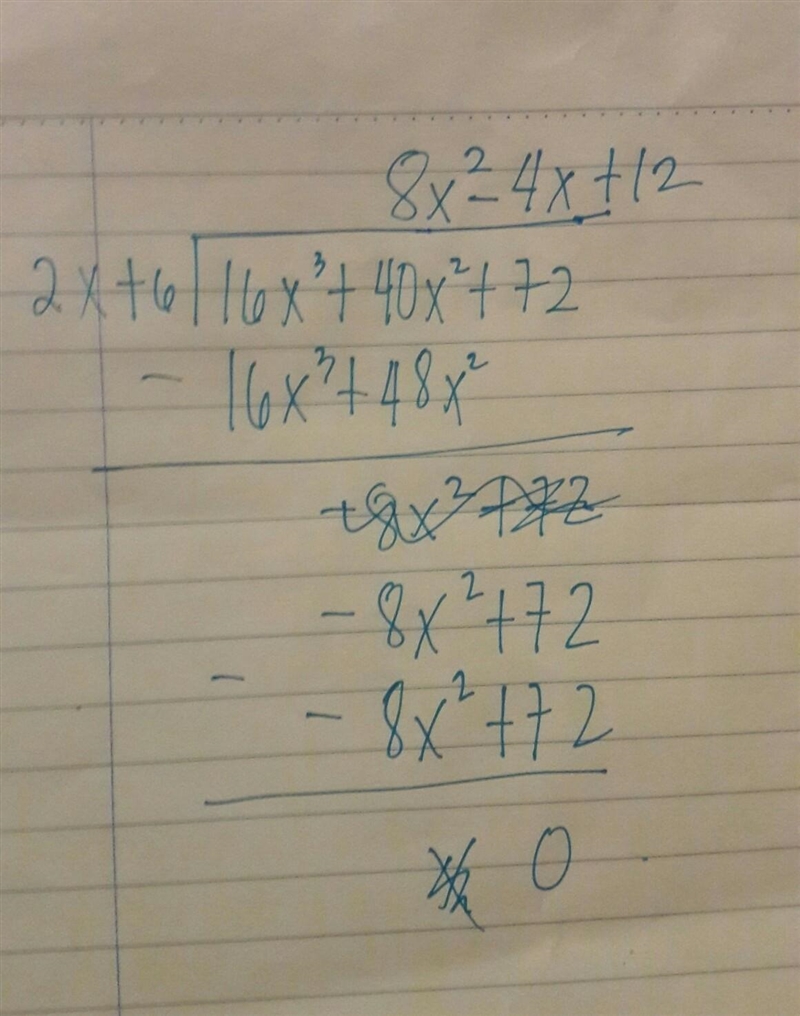 8x² - 4x + 12
2x + 6 | 16x³ + 40x² + 72
- 16x³ + 48x²
+8x² + 72
- 8x² + 72
- - 8x² + 72
0